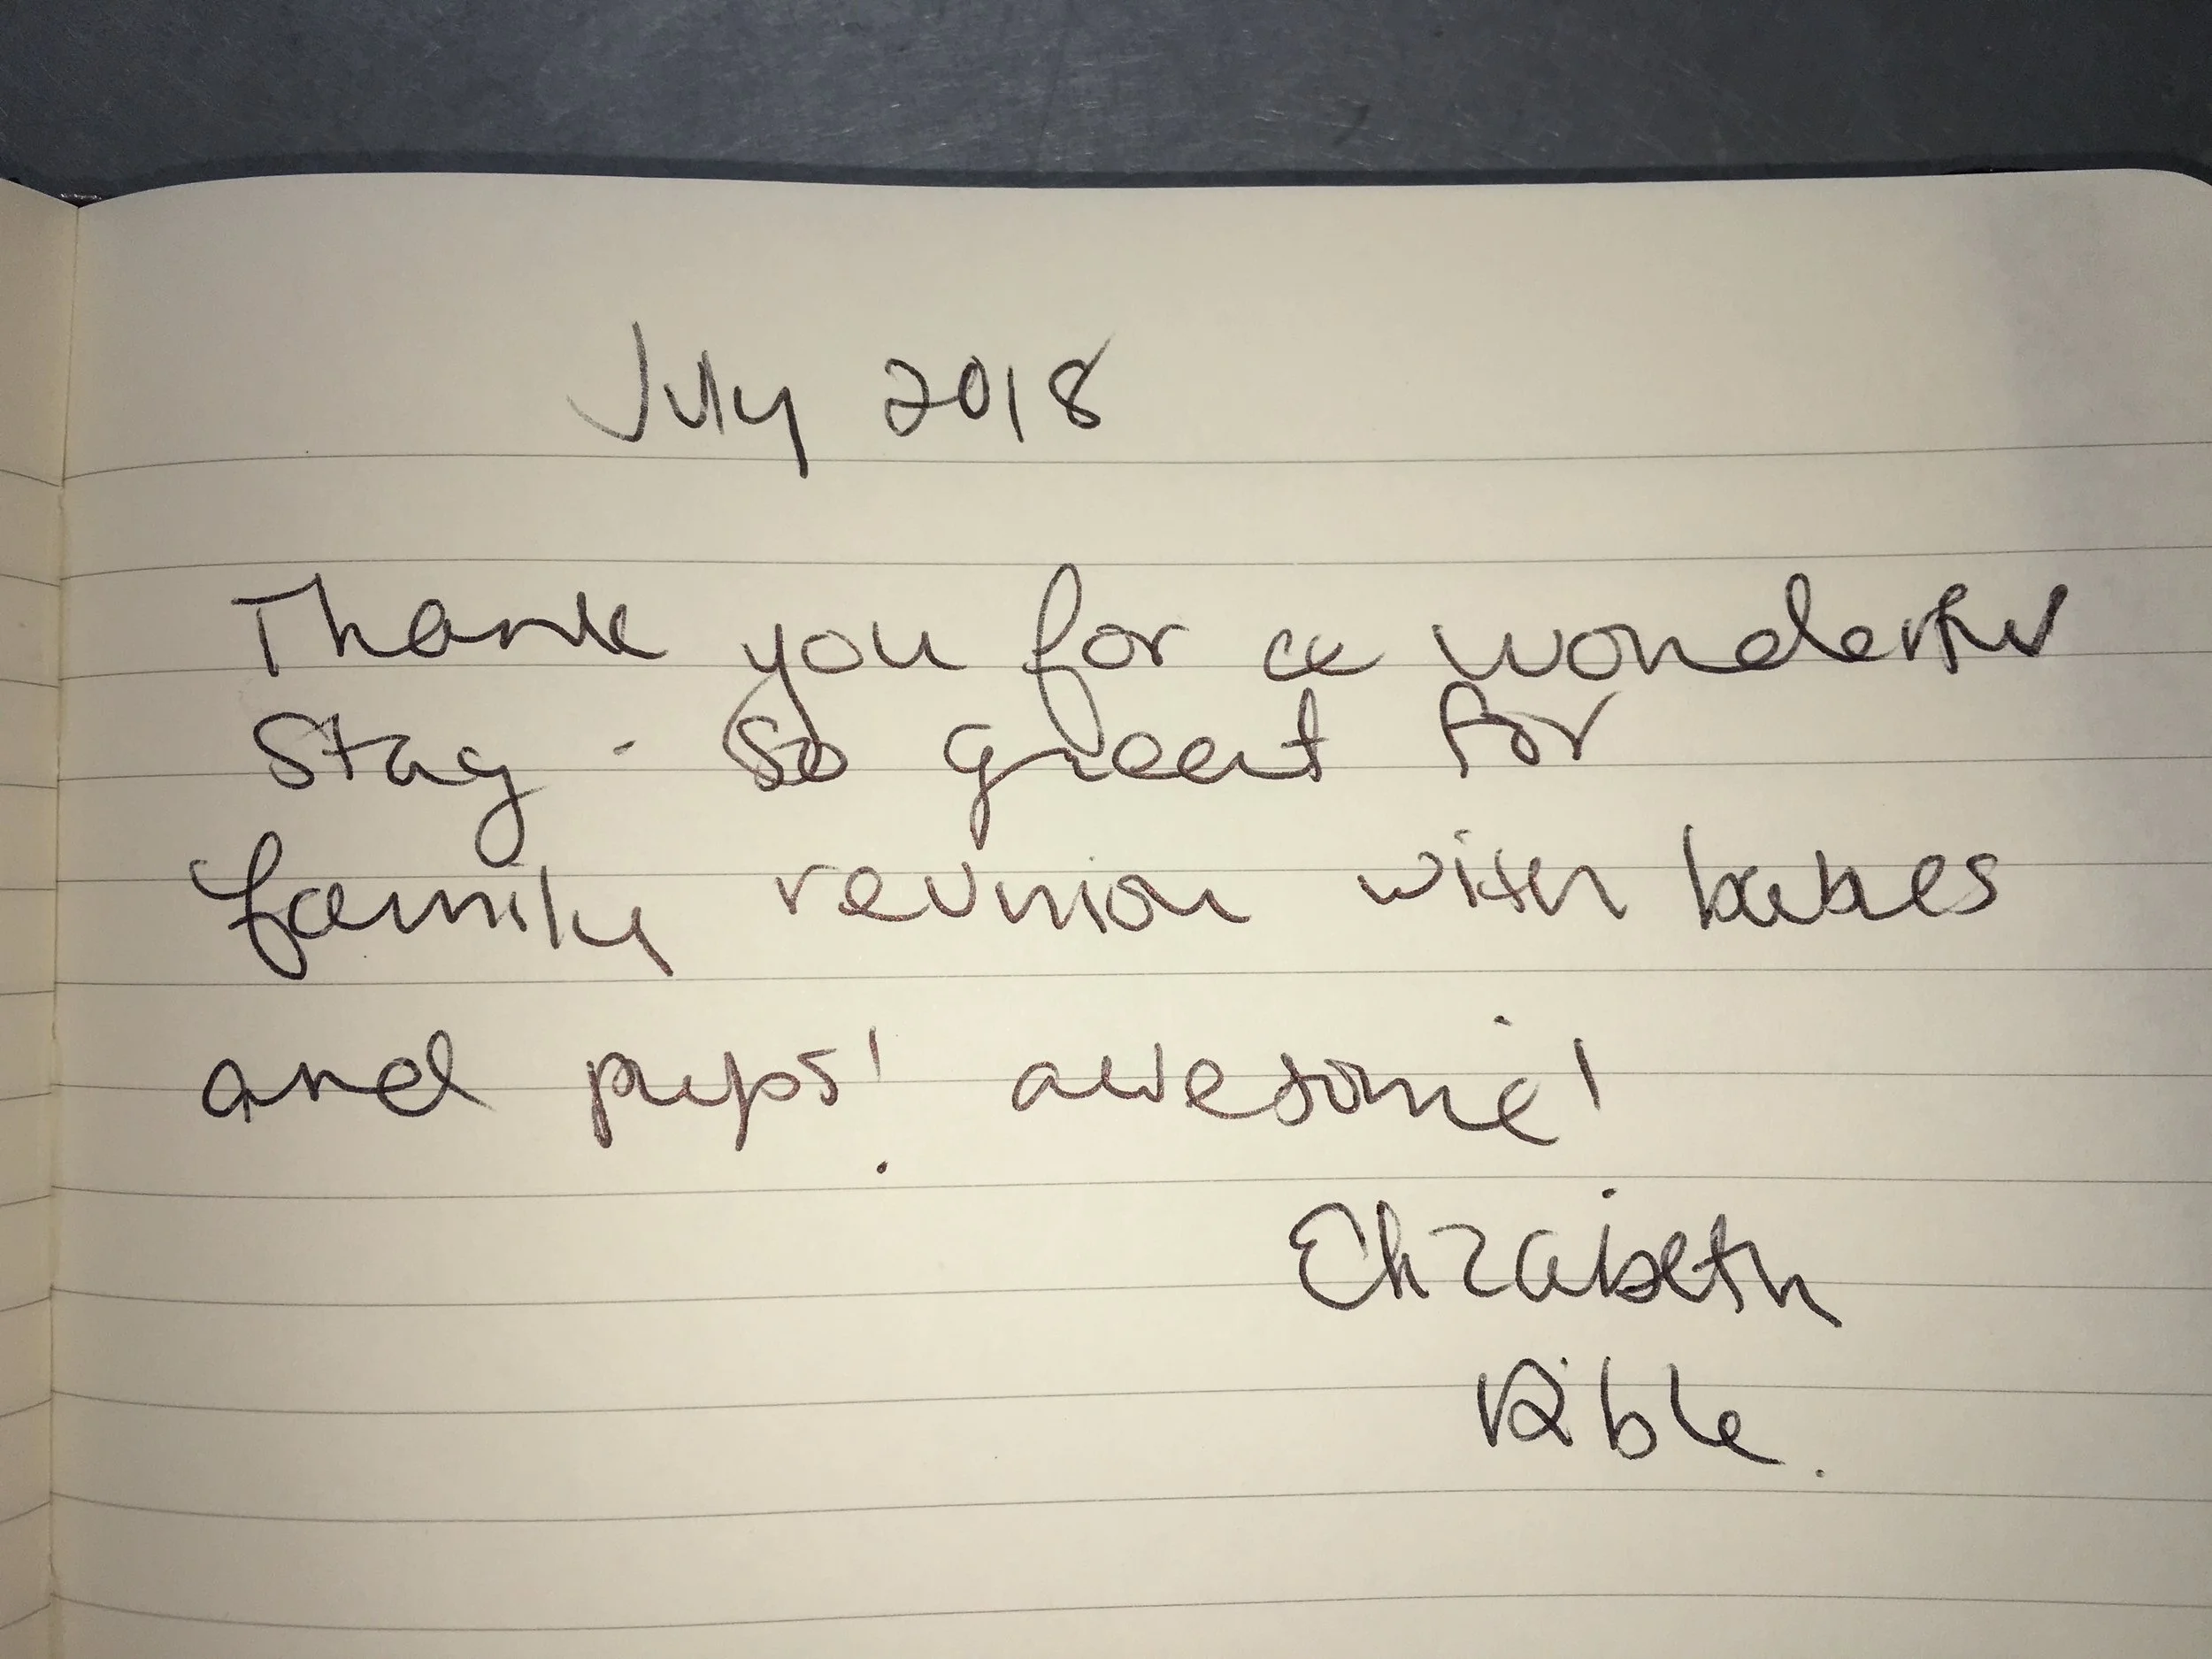 July 2018
Thank you for a wonderful
stay - So great for
family reunion with babes
and pups! awesome!
Elizabeth
Rible.